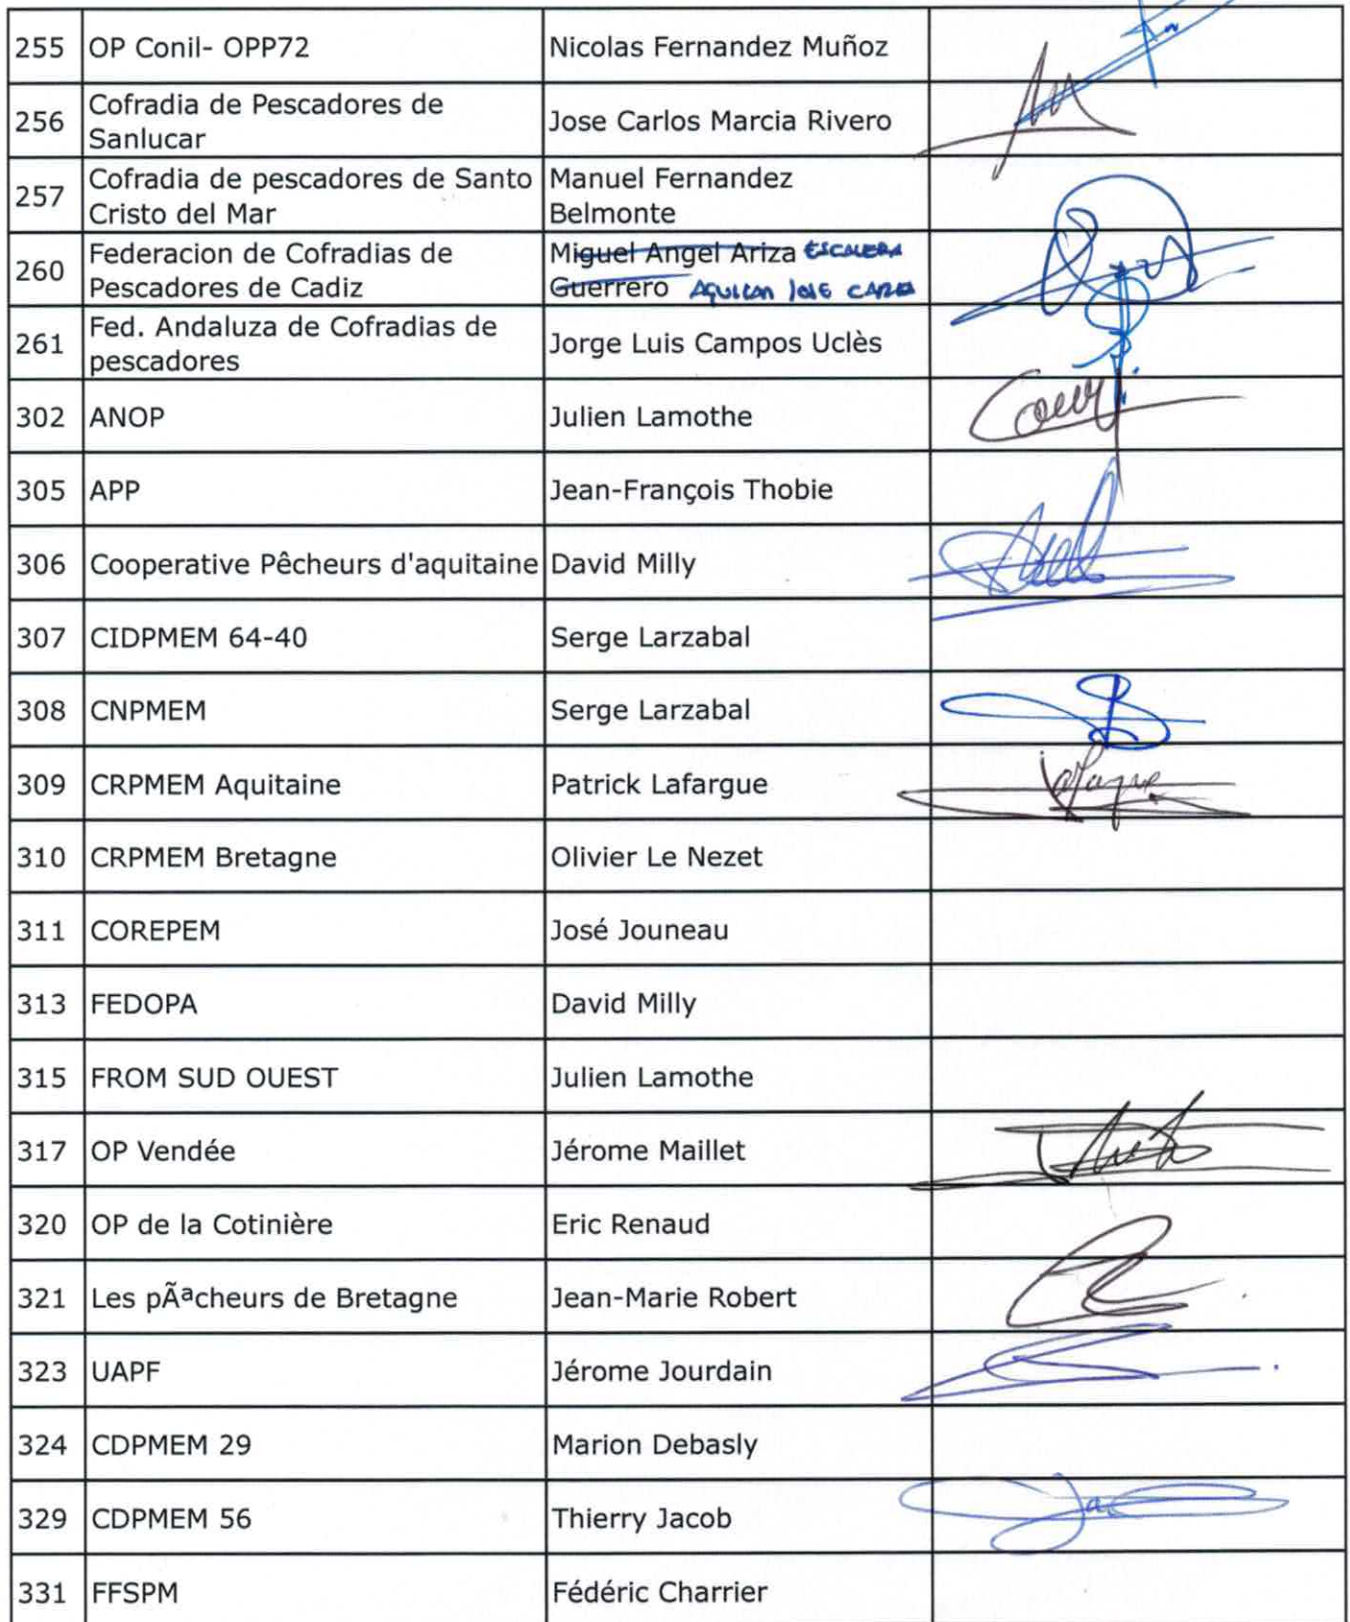 255 OP Conil- OPP72 Nicolas Fernandez Muñoz
256 Cofradia de Pescadores de Sanlucar Jose Carlos Marcia Rivero
257 Cofradia de pescadores de Santo Cristo del Mar Manuel Fernandez Belmonte
260 Federacion de Cofradias de Pescadores de Cadiz Miguel Angel Ariza Guerrero ESCALERA JOSE
261 Fed. Andaluza de Cofradias de pescadores Jorge Luis Campos Uclès
302 ANOP Julien Lamothe
305 APP Jean-François Thobie
306 Cooperative Pêcheurs d'aquitaine David Milly
307 CIDPMEM 64-40 Serge Larzabal
308 CNPMEM Serge Larzabal
309 CRPMEM Aquitaine Patrick Lafargue
310 CRPMEM Bretagne Olivier Le Nezet
311 COREPEM José Jouneau
313 FEDOPA David Milly
315 FROM SUD OUEST Julien Lamothe
317 OP Vendée Jérome Maillet
320 OP de la Cotinière Eric Renaud
321 Les pÃªcheurs de Bretagne Jean-Marie Robert
323 UAPF Jérome Jourdain
324 CDPMEM 29 Marion Debasly
329 CDPMEM 56 Thierry Jacob
331 FFSPM Fédéric Charrier